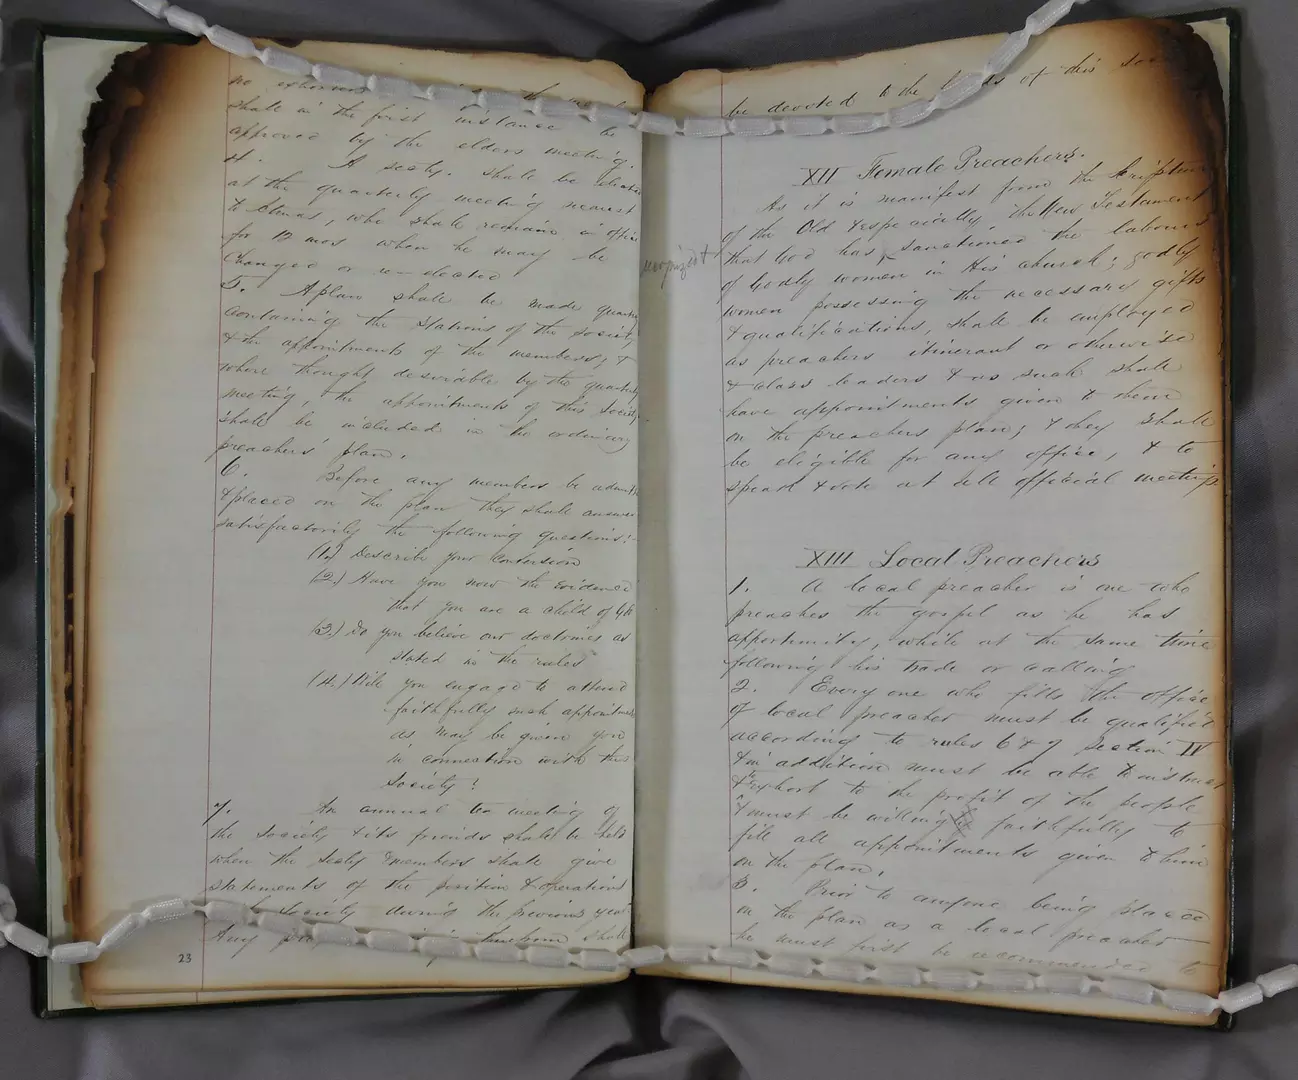 no
shall in the first instance be
approved by the elders meeting.
4. A secty. shall be elected
at the quarterly meeting nearest
to Xmas, who shall remain in office
for 12 mos when he may be
changed or re-elected
5. A plan shall be made
containing the stations of the society
& the appointments of the members, &
where thought desirable by the
meeting, the appointments of this Society
shall be included in the ordinary
preachers' plan.
6. Before any members be
& placed on the plan they shall answer
satisfactorily the following questions:-
(1.) Describe your conversion
(2.) Have you now the evidence
that you are a child of
(3.) Do you believe our doctrines as
stated in the rules
(4.) Will you engage to attend
faithfully such
as may be given you
in connection with this
Society?
7. An annual tea meeting of
the Society & its friends shall be held
when the Secty & members shall give
statements of the position & operations
Society during the previous year
Any shall
23
be devoted to the of this
XII Female Preachers.
As it is manifest from the Scriptures
of the Old & especially the New Testament
that God has sanctioned the labours
recognized &
of Godly women in His church; godly
women possessing the necessary gifts
& qualifications, shall be employed
as preachers itinerant or otherwise
& class leaders & as such shall
have appointments given to them
on the preachers plan; & they shall
be eligible for any office, & to
speak & vote at all official meetings
XIII Local Preachers
1. A local preacher is one who
preaches the gospel as he has
opportunity, while at the same time
following his trade or calling
2. Every one who fills the office
of local preacher must be
according to rules 6 & 9 Section IV
& in addition must be able to instruct
& exhort to the profit of the people
& must be willing faithfully to
fill all appointments given to him
on the plan.
3. Prior to anyone being placed
on the plan as a local preacher
he must first be recommended to